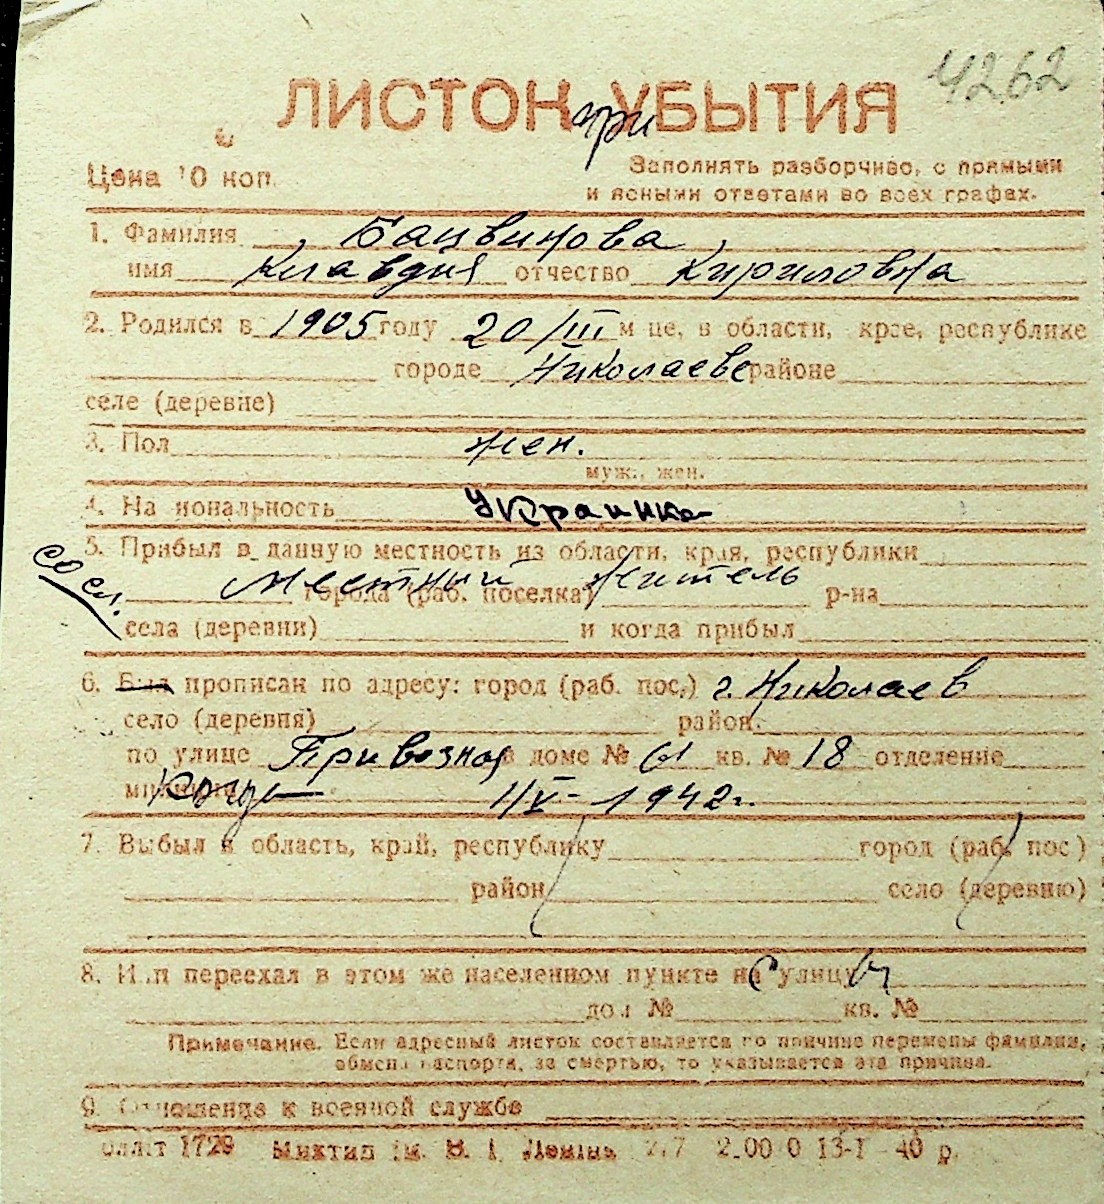 4262
ЛИСТОК УБЫТИЯ
при
Цена 10 коп.
Заполнять разборчиво, с прямыми
и ясными ответами во всех графах.
1. Фамилия Бацвинова
имя Клавдия отчество Кириловна
2. Родился в 1905 году 20/III м це, в области, крае, республике
городе Николаеве районе
селе (деревне)
3. Пол жен.
муж., жен.
4. На иональность Украинка
5. Прибыл в данную местность из области, края, республики
сосл. Местный житель
города (раб. поселка) р-на
села (деревни) и когда прибыл
6. Был прописан по адресу: город (раб. пос.) г. Николаев
село (деревня) район
по улице Привозная в доме № 61 кв. № 18 отделение
милиции Когда 1/V - 1942 г.
7. Выбыл в область, край, республику город (раб. пос)
район село (деревню)
8. Или переехал в этом же населенном пункте на улицу
дом № кв. №
Примечание. Если адресный листок составляется по причине перемены фамилии,
обмена паспорта, за смертью, то указывается эта причина.
9. Отношение к военной службе
1729 Миктип ім. В. І. Леніна 2.00 0 13-I - 40 р.